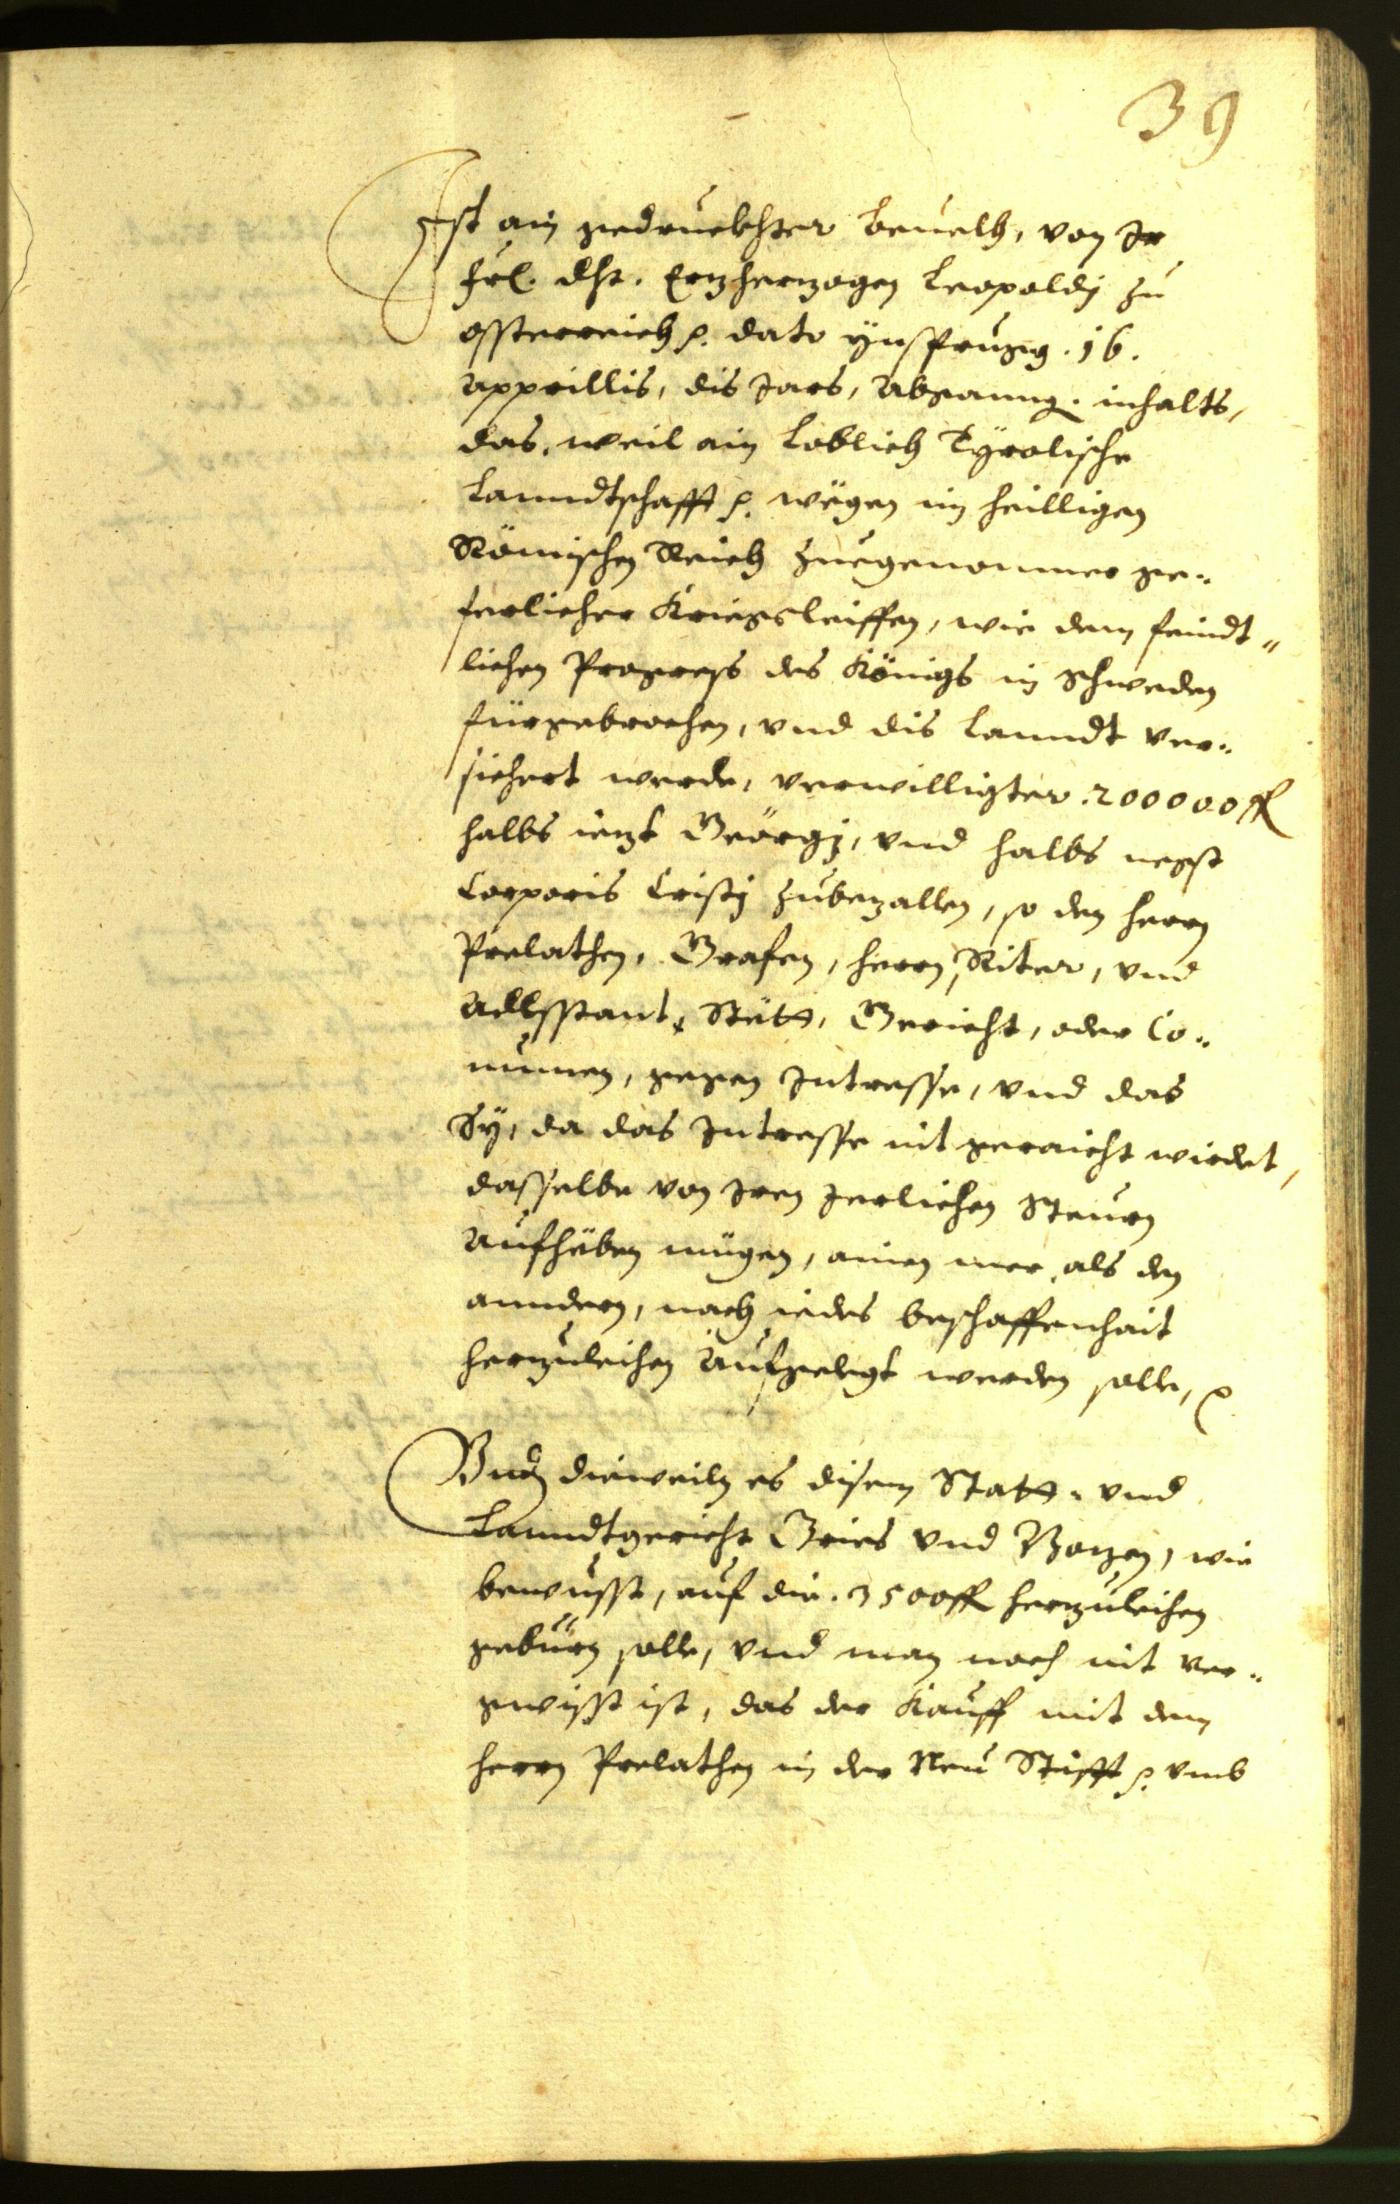 39
Ist ain gedruckhter beuelch, von Ir
frl. dht. Erzherzogen Leopoldj zu
össterreich p. dato ÿnsprugg. 16.
Apprillis, dis Jars, Abganng. inhalts,
das, weil ain Loblich Tÿrolische
Lanndtschafft p. wëgen im heilligen
Römischen Reich zuegenomner ge„
ferlicher Kriegsleiffen, wie dem feindt„
lichen Progress des Königs in Schweden
fürgebrochen, vnd dis Lanndt ver„
sichert werde, verwilligter .200000 fl
halbs iezt Geörgj, vnd halbs negst
Corporis Cristj zubezallen, so den herrn
Prelathen, Grafen, herrn, Riter, vnd
Adlsstant, Stëtt, Gericht, oder Co„
munen, gegen Intresse, vnd das
Sÿ, da das Intresse nit geraicht wirdet,
dasselbe von Iren Jerlichen Steurn
Aufhëben mügen, ainen mer, als den
anndern, nach iedes beschaffenhait
herzuleihen Aufgelegt werden solle, p
Vnd dieweiln es disem Statt- vnd
Lanndtgericht Gries vnd Bozen, wie
bewusst, auf die .3500 fl herzuleihen
gebürn solle, vnd man noch nit ver„
gwisst ist, das der Kauff mit dem
herrn Prelathen in der Neu Stifft p. vmb